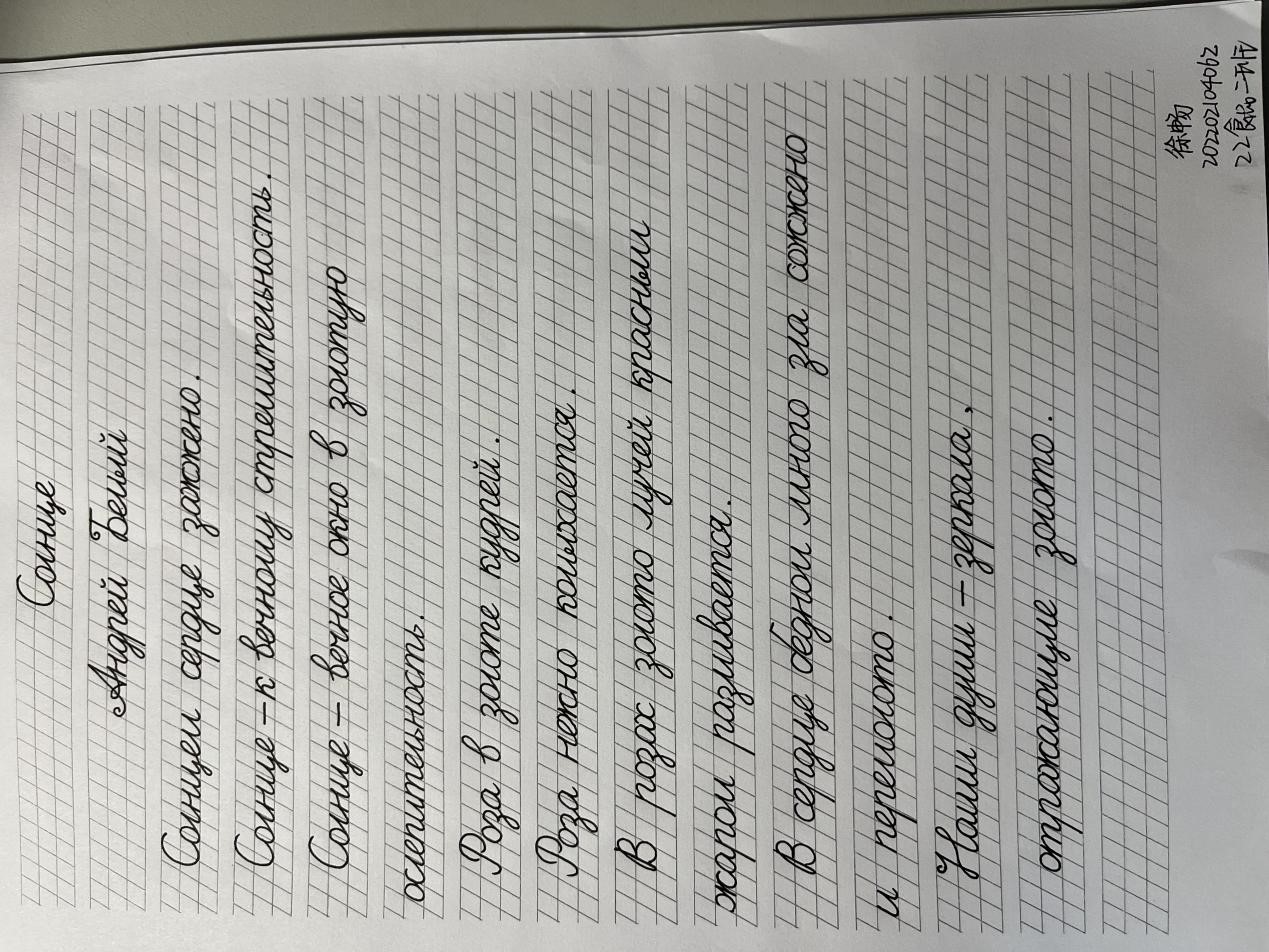 Солнце
Андрей Белый
Солнцем сердце зажжено.
Солнце – к вечному стремительность.
Солнце – вечное окно в золотую
ослепительность.
Роза в золоте кудрей.
Роза нежно колыхается.
В розах золото лучей красным
жаром разливается.
В сердце бедном много зла сожжено
и перемолото.
Наши души – зеркала,
отражающие золото.
徐畅
202202104062
22食品二班